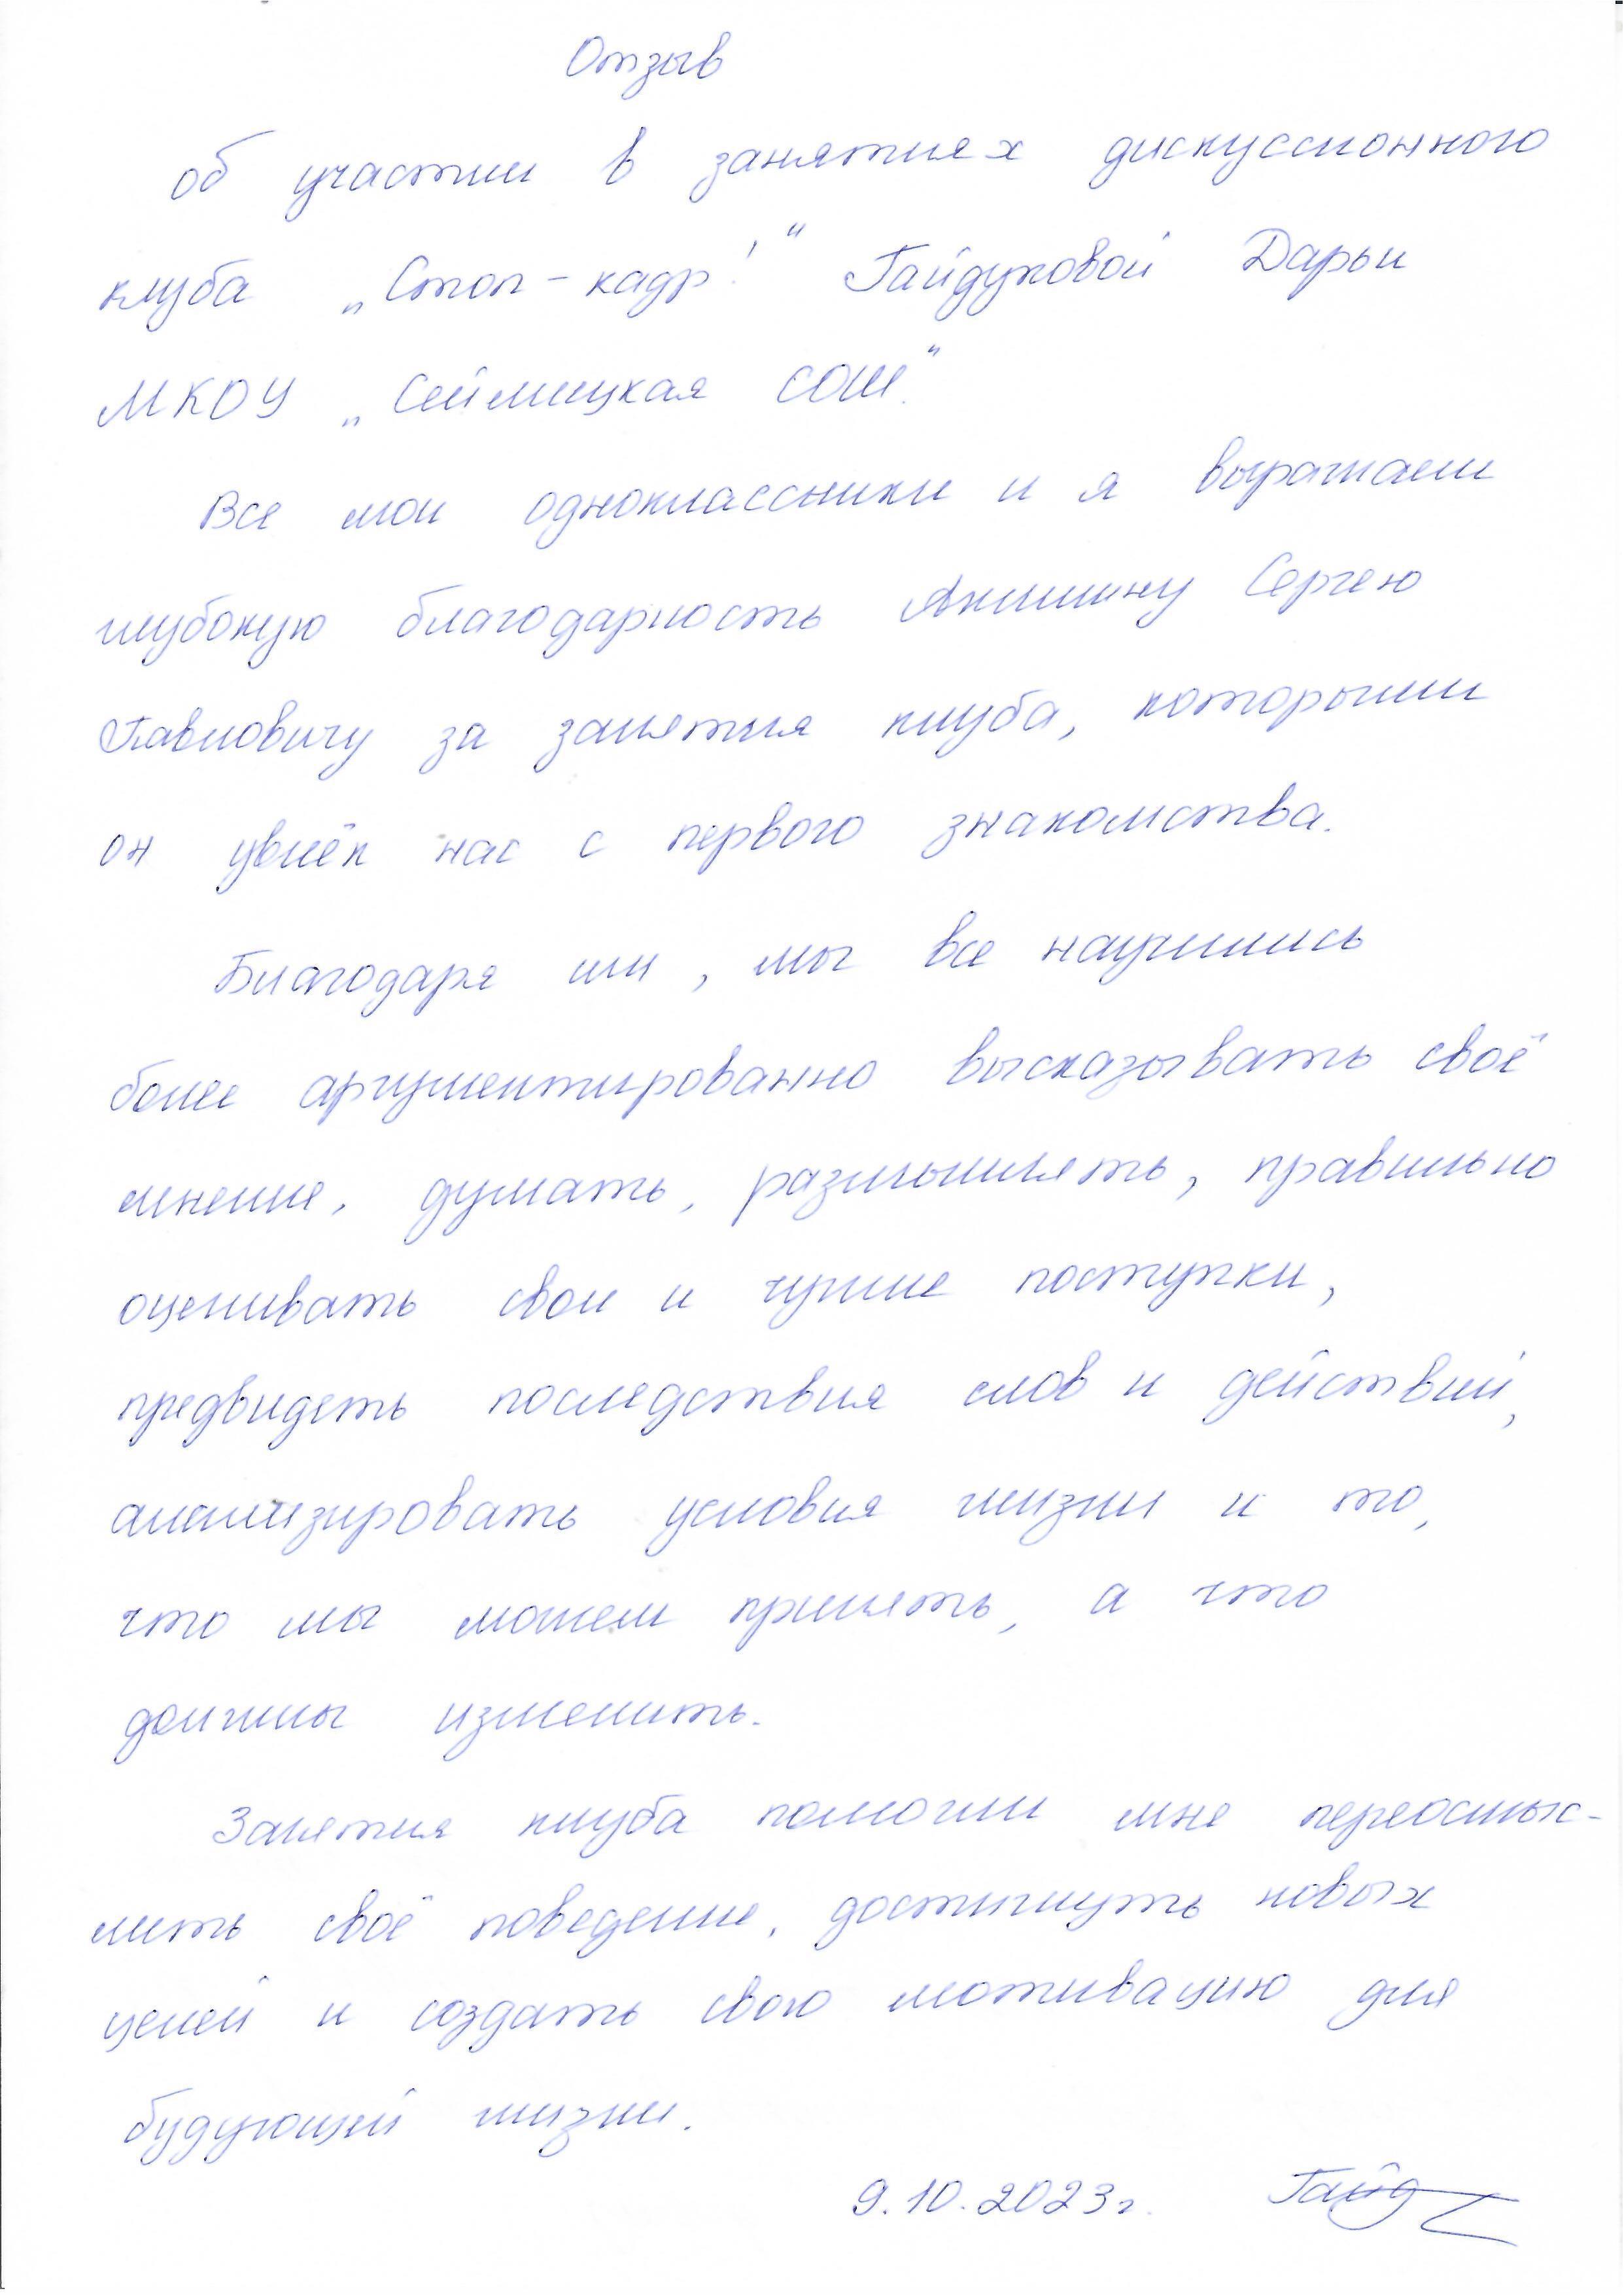 Отзыв
об участии в занятиях дискуссионного
клуба „Стоп-кадр!“ Гайдуковой Дарьи
МКОУ „Сеймицкая СОШ“.
Все мои одноклассники и я выражаем
глубокую благодарность Анишину Сергею
Павловичу за занятия клуба, которыми
он увлёк нас с первого знакомства.
Благодаря им, мы все научились
более аргументированно высказывать своё
мнение, думать, размышлять, правильно
оценивать свои и чужие поступки,
предвидеть последствия слов и действий,
анализировать условия жизни и то,
что мы можем принять, а что
должны изменить.
Занятия клуба помогли мне переосмыс-
лить своё поведение, достигнуть новых
целей и создать свою мотивацию для
будующей жизни.
9.10.2023г. Гайд